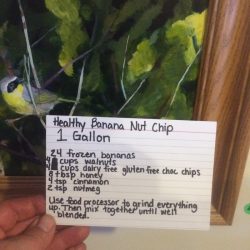 Healthy Banana Nut Chip
1 Gallon
24 frozen bananas
4 cups walnuts
4 cups dairy free gluten free choc chips
8 tbsp honey
4 tsp cinnamon
2 tsp nutmeg
Use food processor to grind everything
up. Then mix together until well
blended.